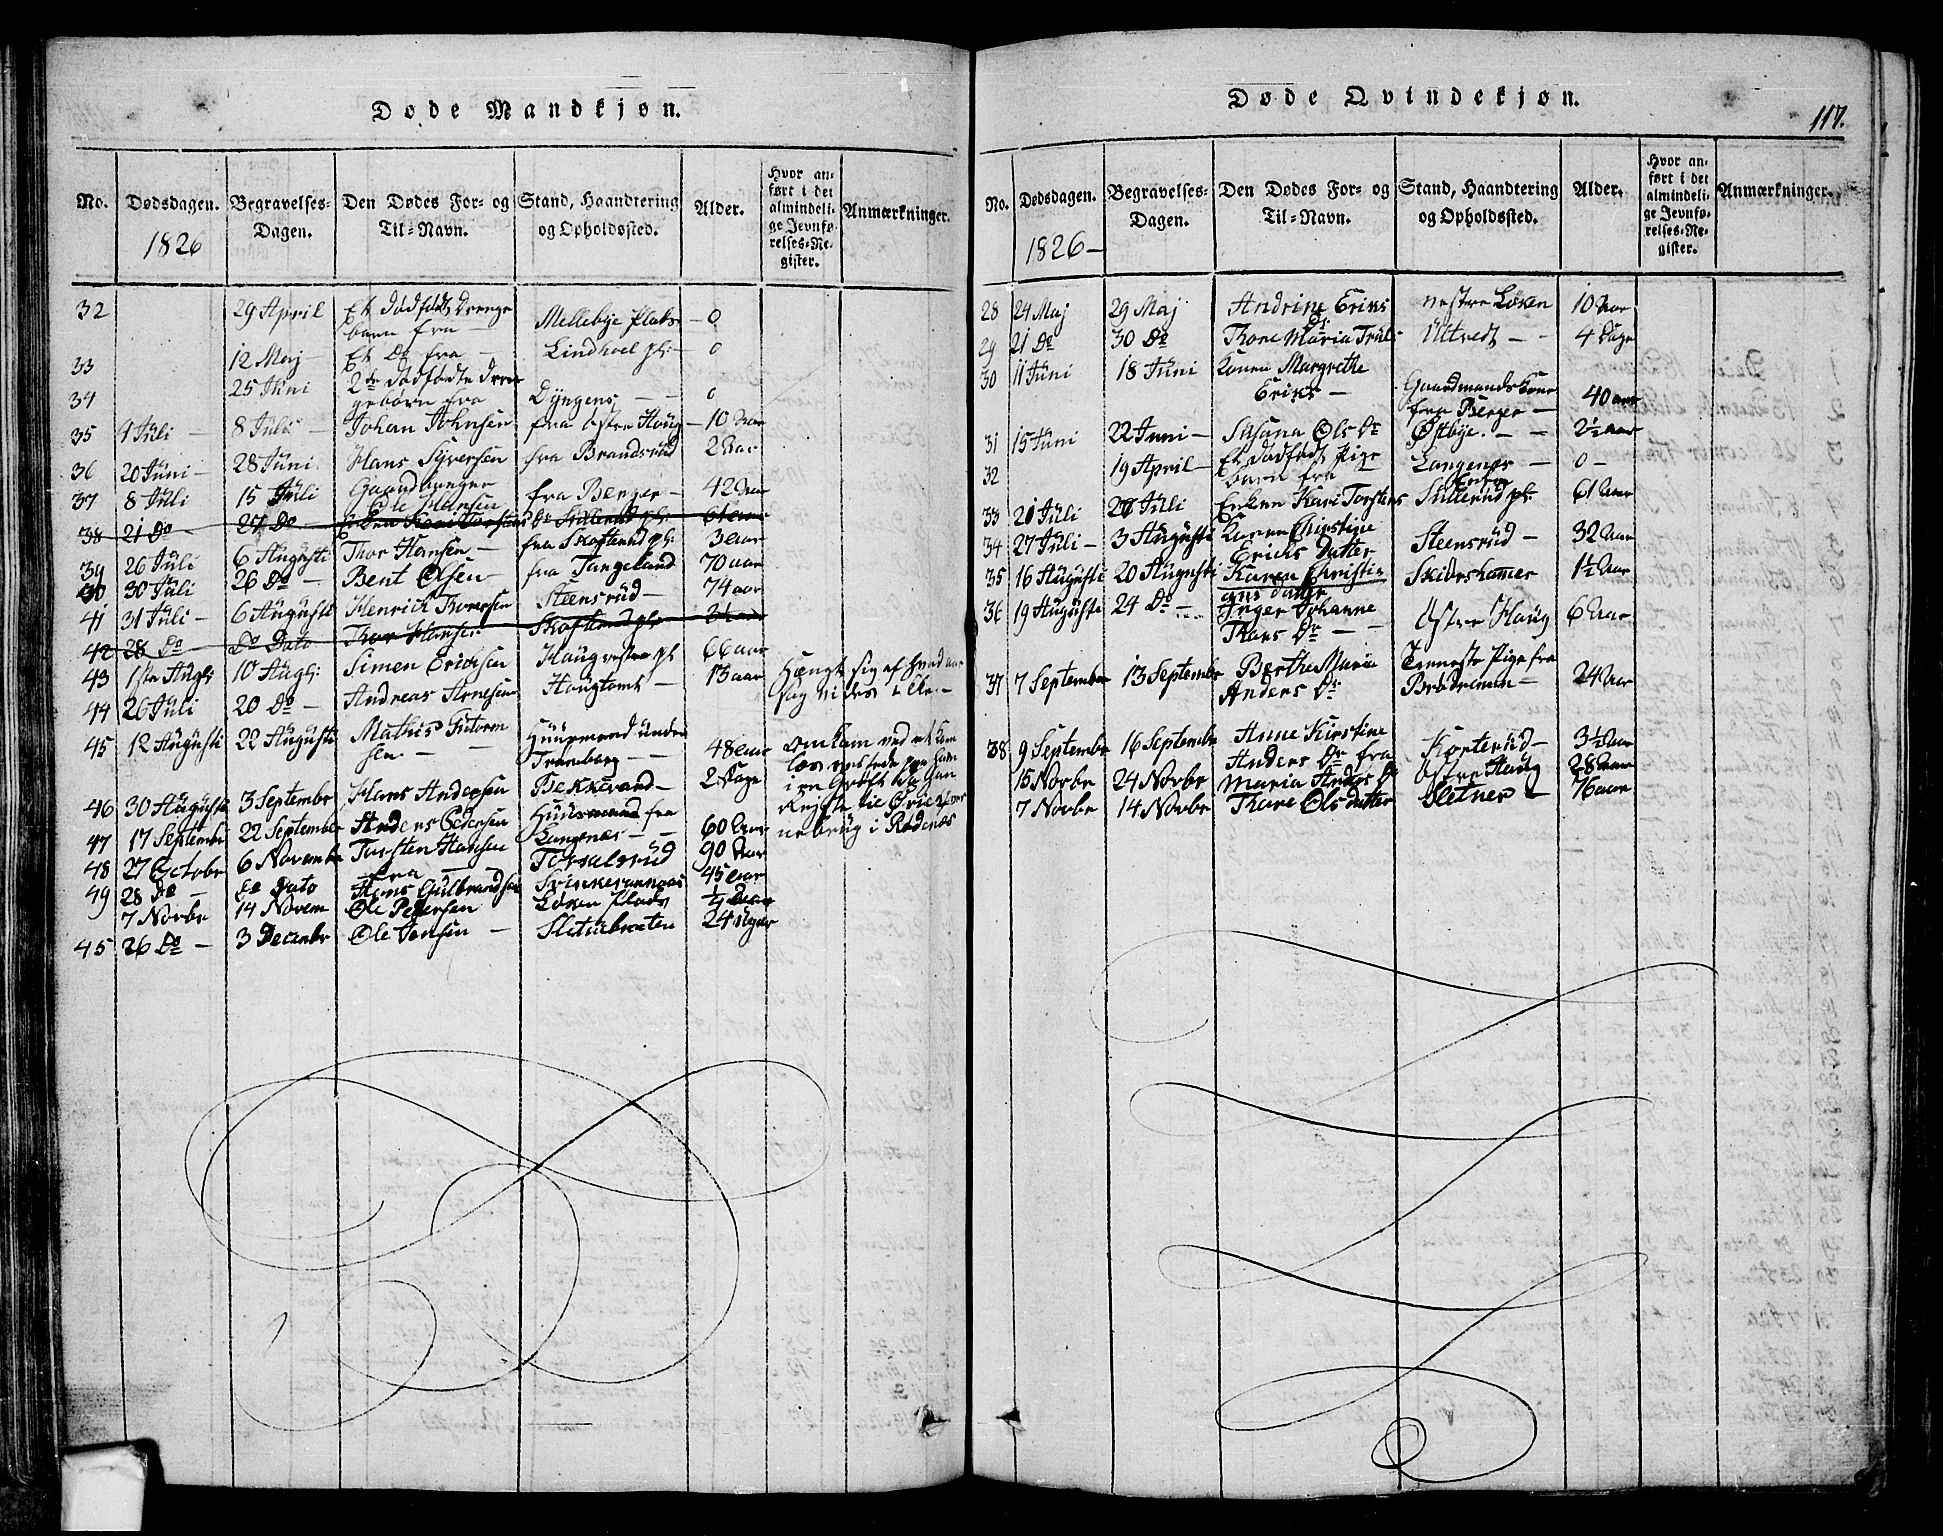 Døde Mandkjøn.
No. Dødsdagen. 1826 Begravelses-Dagen. Den Dødes For- og Til-Navn. Stand, Haandtering og Opholdssted. Alder. Hvor anført i det almindelige Jevnførelses-Register. Anmærkninger.
32 29 April Et dødfødt Drenge barn fra Mellebye Plads – 0
33 12 Maj Et Do fra – Lindhoel pl: – 0
34 25 Juni 2de dødfødte Drengebørn fra Dyngens – – 0
35 4 Juli – 8 Juli – Johan Johnsen fra østre Houg – 10 Aar
36 20 Juni – 28 Juni. Hans Syversen fra Brandsrud 2 Aar
37 8 Juli 15 Juli Gaardmanger Ole Hansen fra Berger – 42 Aar
38 21 Do – 27 Do Enken Kari Torstens Dr Sullerud pl: 61 aar
39 26 Juli 6 Augusti Thor Hansen – fra Skofterud pl: 3 aar
40 30 Juli 26 Do – Bent Olsen – fra Tangeland 70 aar
41 31 Juli – 6 Augusti Henrich Thoresen Steensrud – 74 aar
42 26 Do – Do Dato Thor Hansen Skofterud pl:
43 1ste Augs 10 Augs: Simen Erichsen Haug vestre pl 66 aar
44 26 Juli 20 Do – Andreas Arnesen Haugtomt – 13 aar Hængt sig af hvad aar sag vides ikke. –
45 12 Augusti 22 Augusti Mathis Gutormsen – – Huusmand under Tronborg – – 48 aar omkom ved et
i en Grøft
i Rødenæs
46 30 Augusti 3 Septembr Hans Andersen Bekkevand – 2 Dage
47 17 Septembr 22 September Anders Pedersen Huusmand fra Langenæs – – 60 Aar
48 27 Octobr 6 Novembr Torsten Hansen fra – – Torsalsrud 90 Aar
49 28 Do – do Dato Hans Gulbrandsen 45 aar
7 Novbr 14 Novem Ole Pedersen Løken Plads ¼ Aar
45 26 Do – 3 Decembr Ole Jensen – Sletnebraaten 24 Uger
Døde Qvindekjøn.
117.
No. Dødsdagen. 1826 – Begravelses-Dagen. Den Dødes For- og Til-Navn. Stand, Haandtering og Opholdssted. Alder. Hvor anført i det almindelige Jevnførelses-Register. Anmærkninger.
28 24 Maj 29 Maj Andrine Eriks Dr. vestre Løken 10 Aar
29 21 Do 30 Do Thore Maria Truls Ultvedt – – 4 Dage
30 11 Juni 18 Juni Konen Margrethe Eriks – Gaardmands Kone fra Berger – 40 aar
31 15 Juni 22 Juni – Susana Ols Dr Østbye. – – 2½ aar
32 19 April – Et dødfødt Pige barn fra Langenæs – 0 –
33 21 Juli 27 Juli Enken Kari Torstens Sullerud pl: 61 Aar
34 27 Juli – 3 Augusti Karen Christine Erichs Datter Steensrud – 32 Aar
35 16 Augusti 20 Augusti Karen Christiansdatter Skidershammer 1½ Aar
36 19 Augusti 24 Do – Inger Johanne Thans Dr – – Østre Haug 6 Aar
37 7 Septembr 13 Septembr Berthe Marie Anders Dr Tieneste Pige fra – 24 Aar
38 9 Septembr 16 Septembr Anne Kirstine Anders Dr fra Korterud – 3½ Aar
15 Novbr 24 Novbr Maria Anders Dr Østre Haug 28 Aar
7 Novbr 14 Novbr Thore Olsdatter Sletner – 76 aar